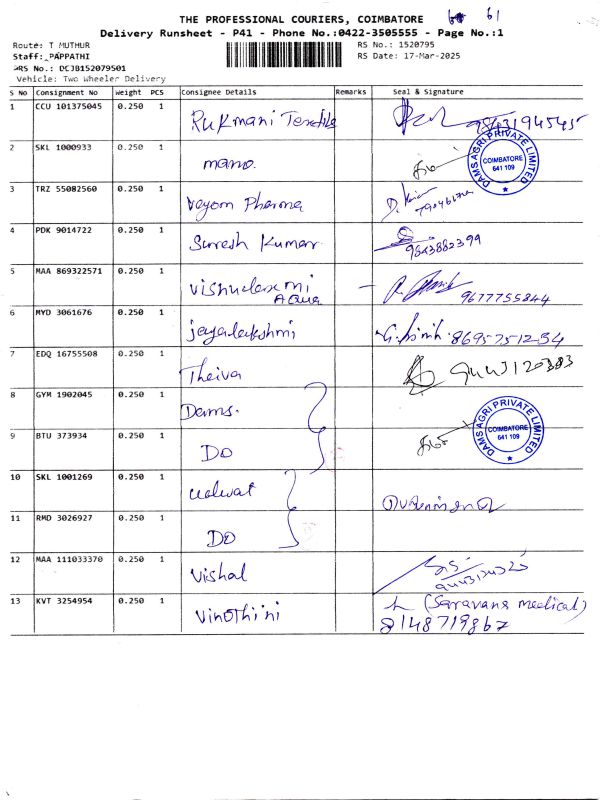 61
THE PROFESSIONAL COURIERS, COIMBATORE
Delivery Runsheet - P41 - Phone No.:0422-3505555 - Page No.:1
Route: T MUTHUR
RS No.: 1520795
Staff: PAPPATHI
RS Date: 17-Mar-2025
RS No.: DCJB152079501
Vehicle: Two Wheeler Delivery
S No Consignment No Weight PCS Consignee Details Remarks Seal & Signature
1 CCU 101375045 0.250 1 Rukmani Textile
2 SKL 1000933 0.250 1 mano.
DAMS AGRI PRIVATE LIMITED
COIMBATORE
641 109
3 TRZ 55082560 0.250 1 Veyom Pharma
4 PDK 9014722 0.250 1 Suresh Kumar 9843882399
5 MAA 869322571 0.250 1 9677755844
Aqua
6 MYD 3061676 0.250 1 jeyalakshmi 8695751234
7 EDQ 16755508 0.250 1 Theiva
8 GYM 1902045 0.250 1 Dams.
DAMS AGRI PRIVATE LIMITED
COIMBATORE
641 109
9 BTU 373934 0.250 1 DO
10 SKL 1001269 0.250 1
11 RMD 3026927 0.250 1 DO
12 MAA 111033370 0.250 1 Vishal
13 KVT 3254954 0.250 1 Vinothini (Saravans medical)
8148719867